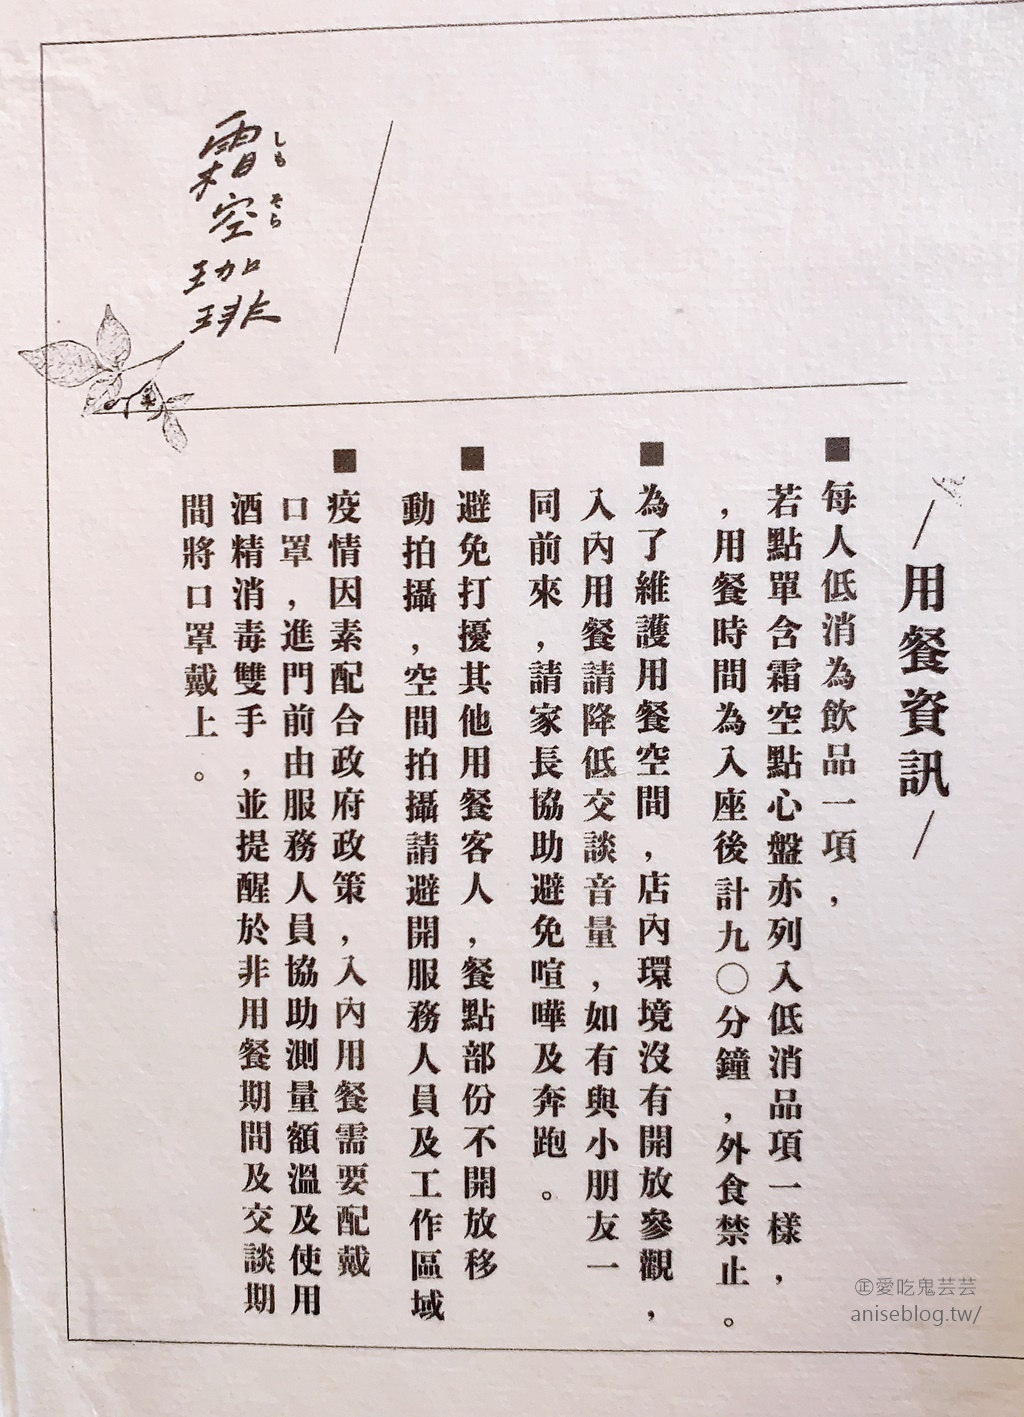 霜空珈琲
しもそら
／用餐資訊／
■每人低消為飲品一項，
若點單含霜空點心盤亦列入低消品項一樣，
，用餐時間為入座後計九〇分鐘，外食禁止。
■為了維護用餐空間，店內環境沒有開放參觀，
入內用餐請降低交談音量，如有與小朋友一
同前來，請家長協助避免喧嘩及奔跑。
■避免打擾其他用餐客人，餐點部份不開放移
動拍攝，空間拍攝請避開服務人員及工作區域
■疫情因素配合政府政策，入內用餐需要配戴
口罩，進門前由服務人員協助測量額溫及使用
酒精消毒雙手，並提醒於非用餐期間及交談期
間將口罩戴上。
㊣愛吃鬼芸芸
aniseblog.tw/